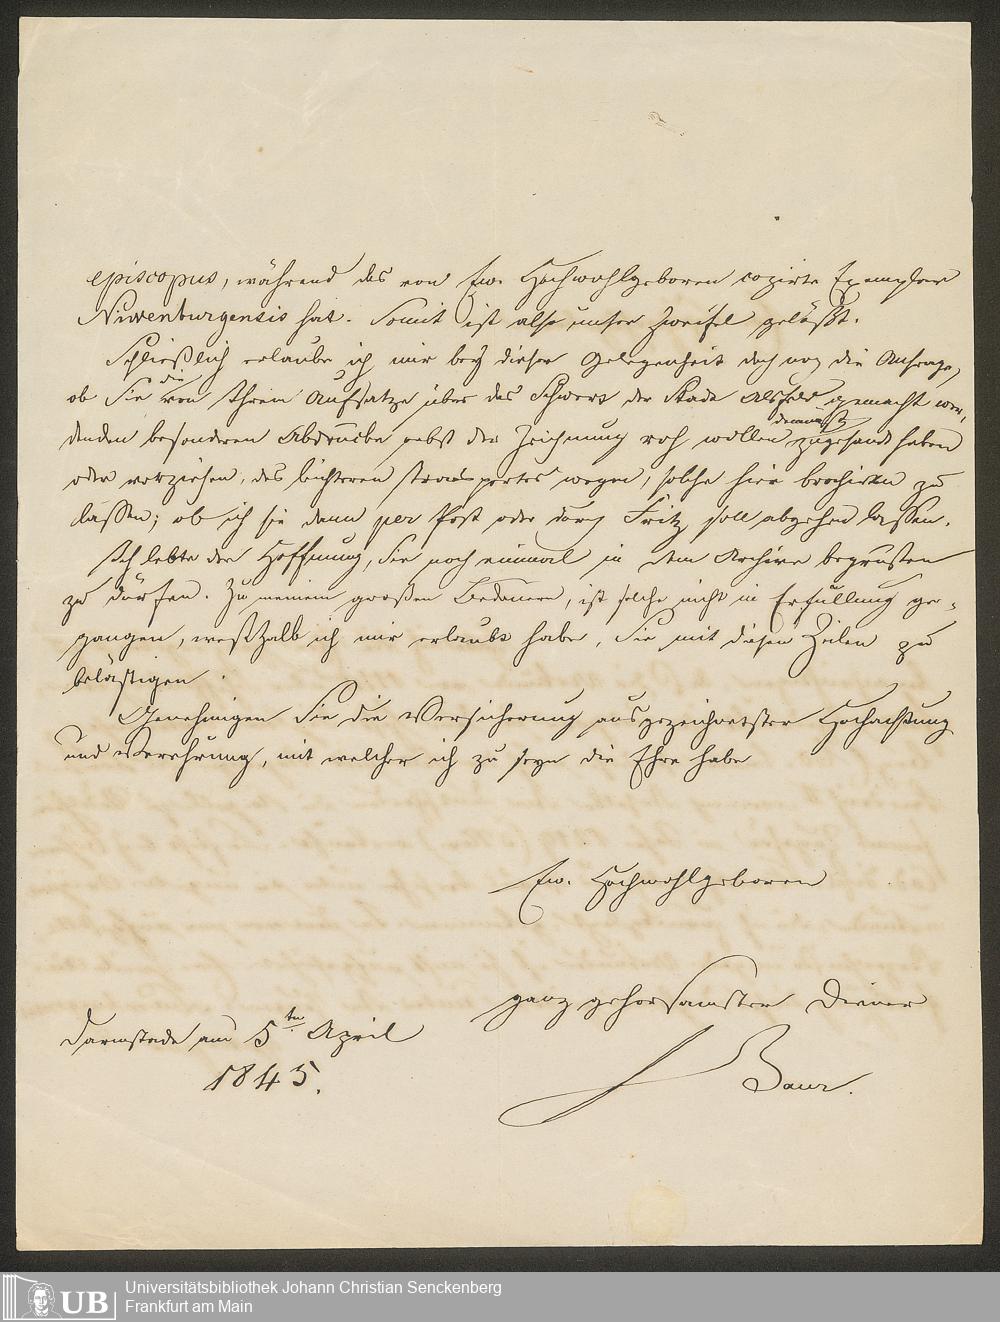 episcopus, während das von Ew. Hochwohlgeboren copirte Exemplar
Nuwenburgensis hat. Somit ist aller unser Zweifel gelößt.
Schließlich erlaube ich mir bey dieser Gelegenheit doch noch die Anfrage,
ob Sie die von Ihrem Aufsatze über das Schwert der Stadt Alsfeld gemacht wer-
denden besonderen Abdrücke nebst der Zeichnung roh wollen zugesandt haben
oder vorziehen, des leichteren Transportes wegen, solche hier brochiren zu
lassen; ob ich sie dann per Post oder durch Fritz soll abgehen lassen.
Ich lebte der Hoffnung, Sie noch einmal in dem Archive begrüßen
zu dürfen. Zu meinem großen Bedauern, ist solche nicht in Erfüllung ge-
gangen, weßhalb ich mir erlaubt habe, Sie mit diesen Zeilen zu
belästigen.
Genehmigen Sie die Versicherung ausgezeichnetster Hochachtung
und Verehrung, mit welcher ich zu seyn die Ehre habe
Ew. Hochwohlgeboren
ganz gehorsamster Diener
Darmstadt am 5ten April
1845.
Baur.
Universitätsbibliothek Johann Christian Senckenberg
Frankfurt am Main
UB